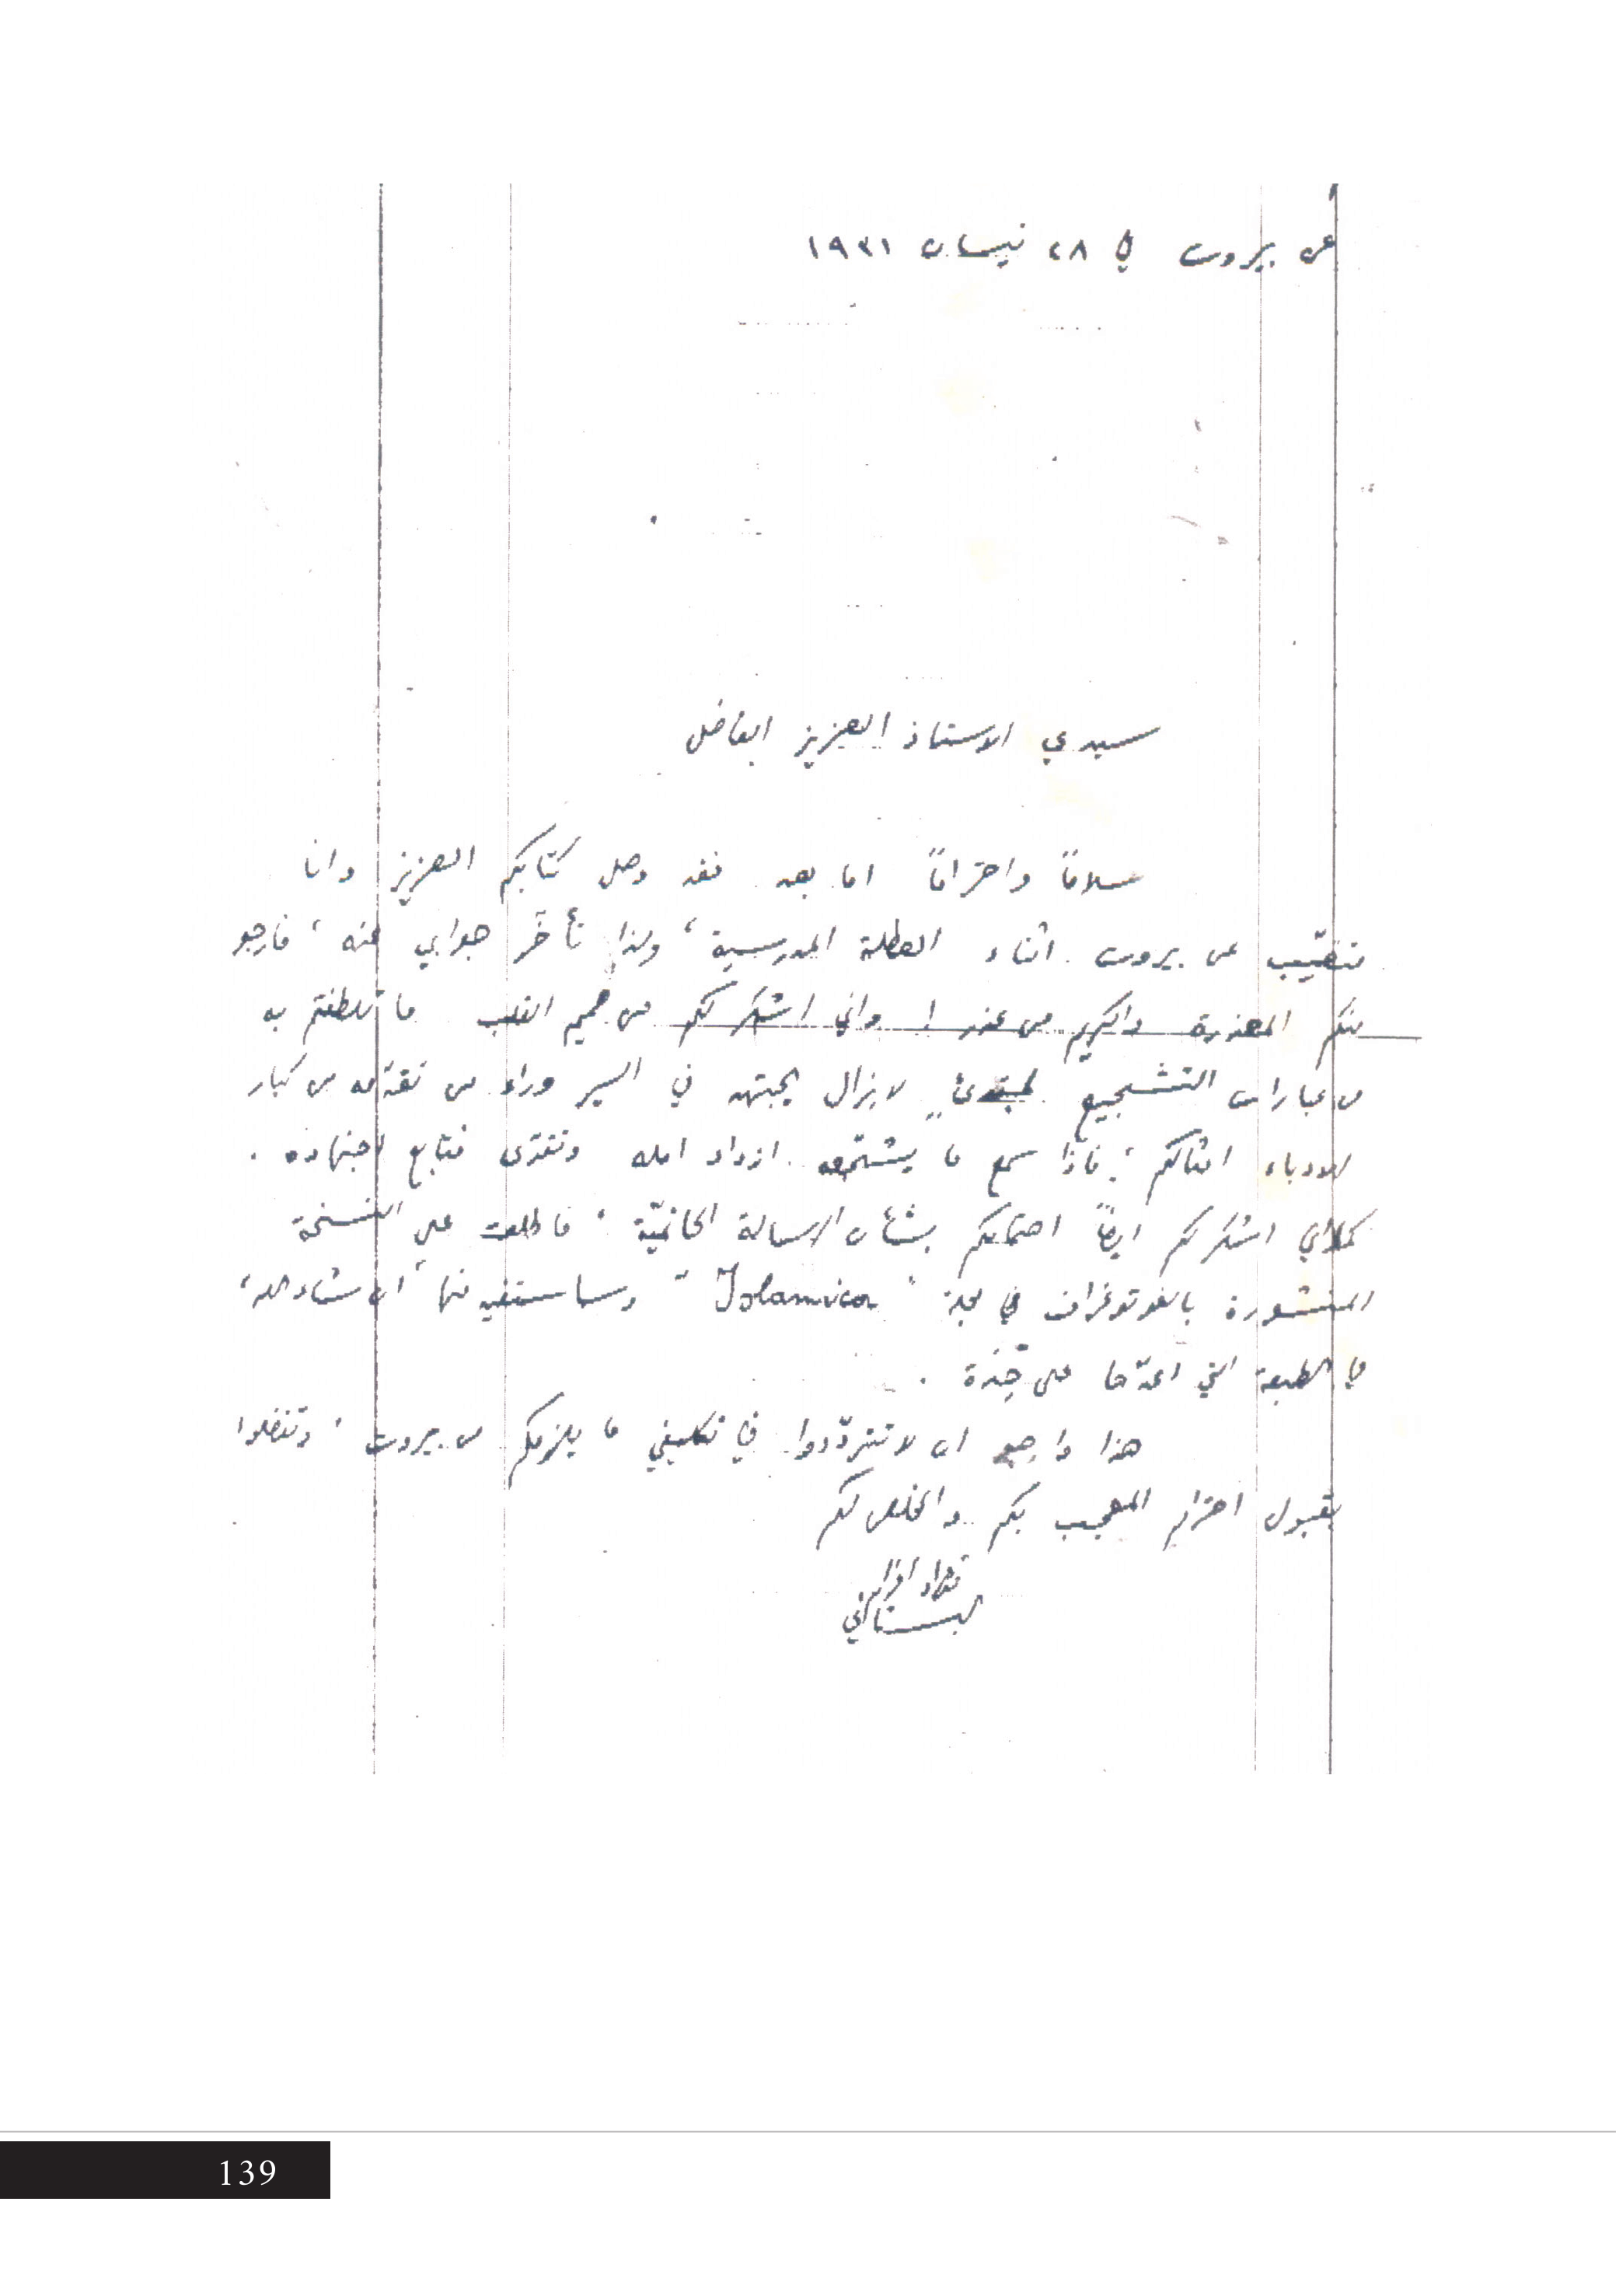 عن بيروت في ٢٨ نيسان ١٩٣١
سيدي الاستاذ العزيز الفاضل
سلاماً واحتراماً اما بعد فقد وصل كتابكم العزيز وانا
متغيّب عن بيروت اثناء العطلة المدرسية، ولذا تأخّر جوابي عنه، فارجو
منكم المعذرة والكريم من عذر ! واني اشكر لكم من صميم القلب ما تلطفتم به
من عبارات التشجيع لمبتدئٍ لا يزال يجتهد في السير وراء من تقدّمه من كبار
الادباء امثالكم؛ فاذا سمع ما يشجّعه ازداد امله وتقوّى فتابع اجتهاده.
كما اني اشكر لكم ايضاً اهتمامكم بشأن الرسالة الحاتميّة، فاطلعت على النسخة
المنشورة بالفوتوغراف في مجلة "Islamica" وساستفيد منها، ان شاء الله،
في الطبعة التي اعدّها على حِدَة.
هذا وارجو ان لا تتردّدوا في تكليفي ما يلزمكم من بيروت، وتفضلوا
بقبول احترام المعجب بكم والمخلص لكم
فؤاد افرام
البستاني
139